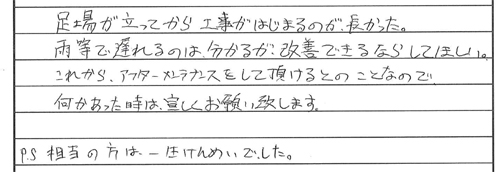 足場が立ってから工事がはじまるのが、長かった。
雨等で遅れるのは、分かるが、改善できるならしてほしい。
これから、アフターメンテナンスをして頂けるとのことなので
何かあった時は、宜しくお願い致します。
P.S 担当の方は一生けんめいでした。